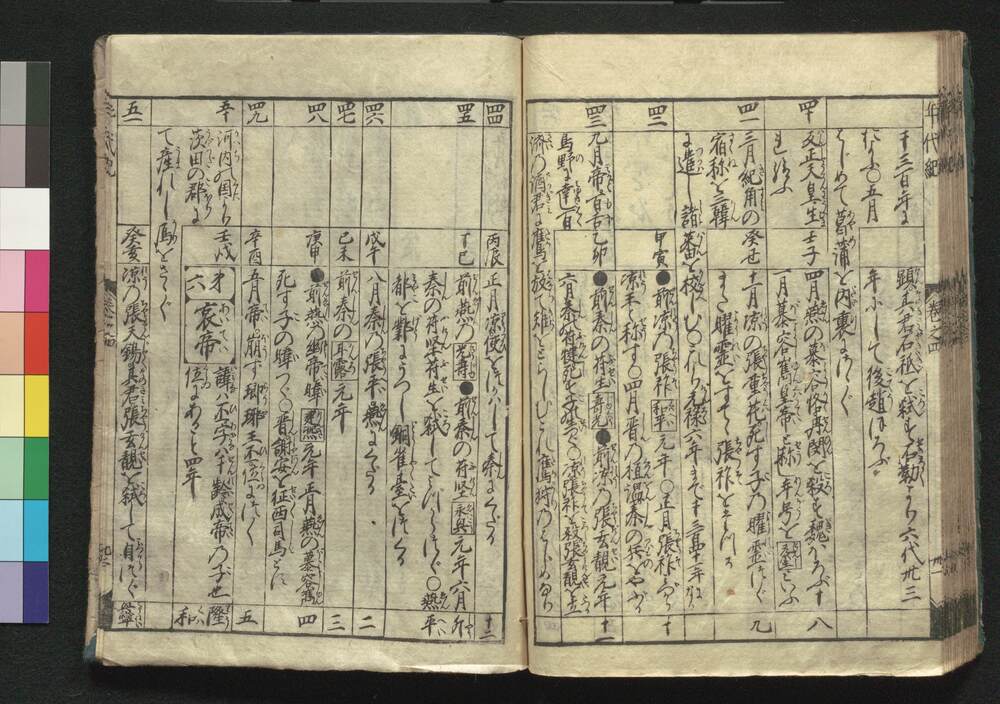 年代紀
巻之四
顕其君石祇を弑す石勒より六代卅三
たふ〇五月
年にして後趙ほろぶ
はじめて菖蒲を内裏にふく
四十 反正天皇生 壬子 四月燕の慕容恪冉閔を殺す魏ほろぶ十 八
れ給ふ 一月慕容雋皇帝と称し年号を元璽といふ
四一 三月紀角の 癸丑 十一月涼の張重花死す子の曜霊つぐ 九
宿祢を三韓 また曜霊をすてゝ張祚をたつる
に遣し諸蕃を校しむ〇
四二 甲寅 ●前涼の張祚 和平 元年〇正月張祚 十
涼王と称す〇四月晋の桓温秦の兵をやぶる
四三 九月帝百舌 乙卯 ●前秦の苻生 寿光 ●前涼の張玄靚元年 十一
鳥野に 百 六月秦苻健死
済の酒君に鷹を放て雉をとらしむこれ鷹狩のはじめなり
四四 丙辰 正月涼使をつかはして秦にくだる 十二
四五 丁巳 ●前燕の光寿●前秦の苻坚永興元年六月 升平
秦の苻坚苻生を弑してみづからつぐ〇燕
都を鄴にうつし銅雀臺をつくる
四六 戊午 八月秦の張平燕にくだる 二
四七 己未 前秦の甘露元年 三
四八 庚申 ●前燕の幽帝暐建熙元年 正月燕の慕容雋 四
死す子の暐つぐ〇晋謝安を征西司馬とす
四九 辛酉 五月帝崩ず瑯琊王丕位につく 五
五十 河内の国より 壬戌 才六 哀帝 諱ハ丕字ハ千齢成帝の子也 隆和
茨田の郡に 位にある四年
て産れし馬をさゝぐ
五一 癸亥 涼の張天錫其君張玄靚を弑して自つぐ 興寧